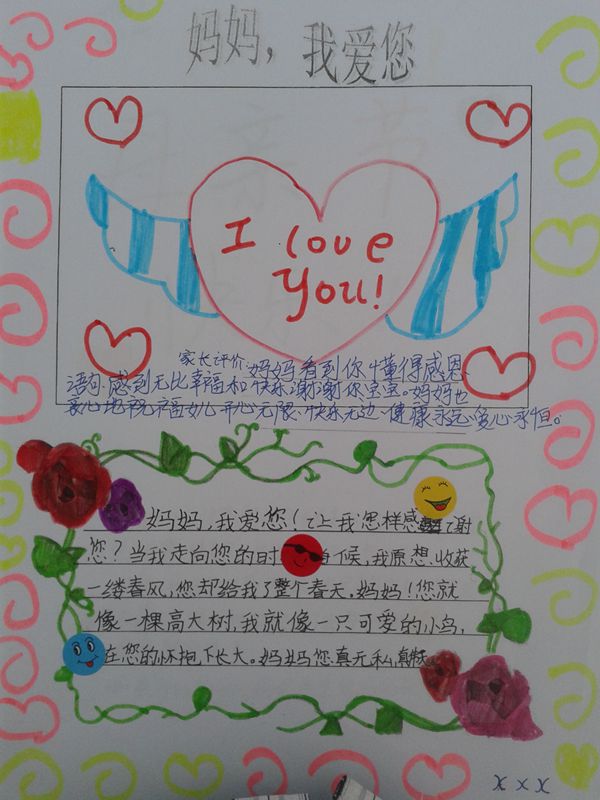 妈妈，我爱您
I love
you!
家长评价：妈妈看到你懂得感恩
语句，感到无比幸福和快乐谢谢你宝宝。妈妈也
衷心地祝福女儿开心无限、快乐无边、健康永远爱心永恒。
妈妈，我爱您！让我怎样感谢
您？当我走向您的时候，我原想，收获
一缕春风，您却给我了整个春天。妈妈！您就
像一棵高大树，我就像一只可爱的小鸟，
在您的怀抱下长大。妈妈您真无私，
x x x